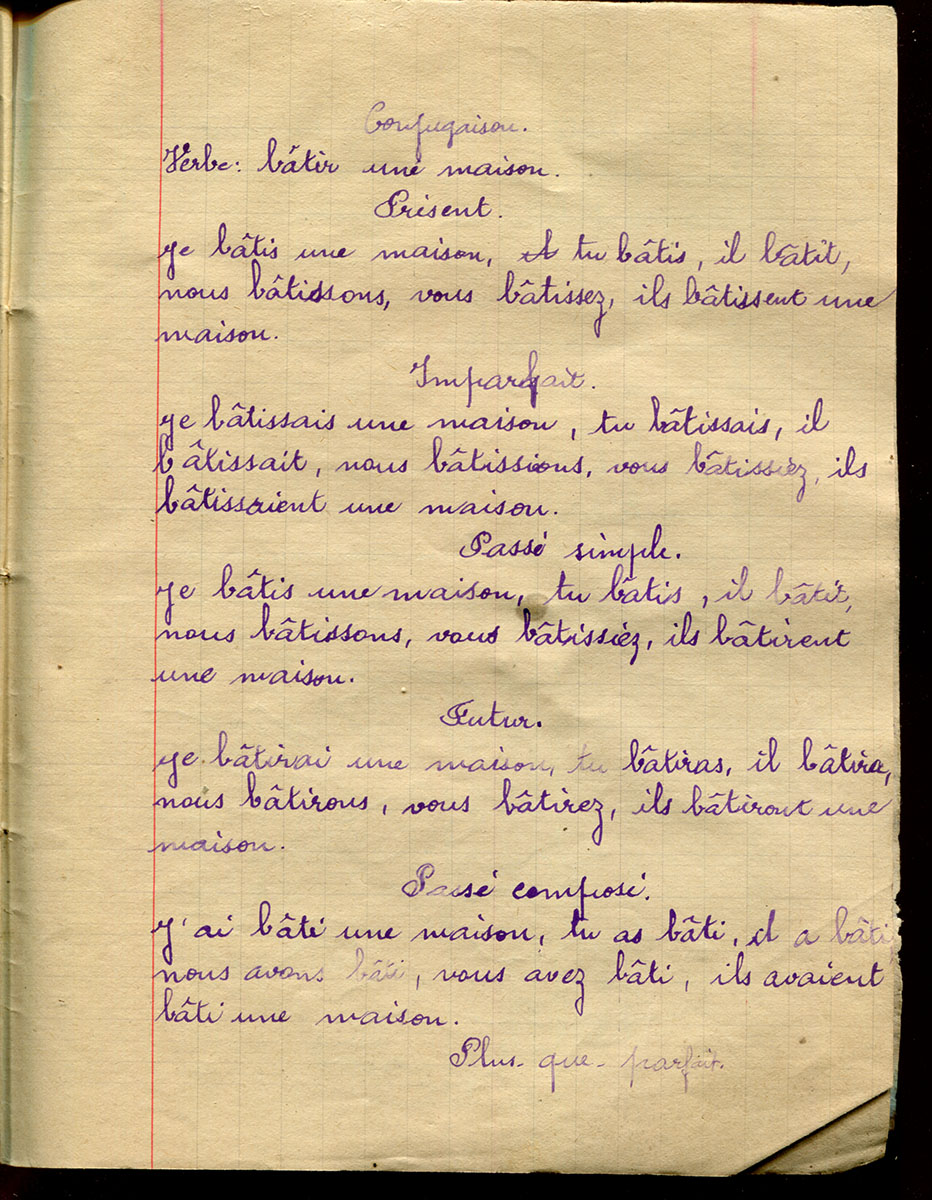 Conjugaison.
Verbe: bâtir une maison.
Présent.
je bâtis une maison, tu bâtis, il bâtit,
nous bâtissons, vous bâtissez, ils bâtissent une
maison.
Imparfait.
je bâtissais une maison, tu bâtissais, il
bâtissait, nous bâtissions, vous bâtissiez, ils
bâtissaient une maison.
Passé simple.
je bâtis une maison, tu bâtis, il bâtit,
nous bâtissons, vous bâtissiez, ils bâtirent
une maison.
Futur.
je bâtirai une maison, tu bâtiras, il bâtira,
nous bâtirons, vous bâtirez, ils bâtiront une
maison.
Passé composé.
J'ai bâti une maison, tu as bâti, il a bâti
nous avons bâti, vous avez bâti, ils avaient
bâti une maison.
Plus-que-parfait.